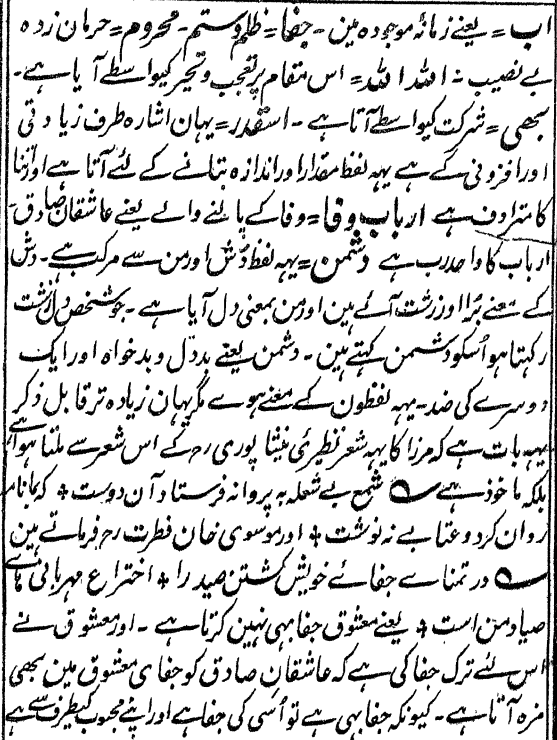 اب = یعنے زمانۂ موجودہ مین ۔ جفا = ظلم و ستم ۔ محروم = حرمان زدہ
بے نصیب ۔ اللہ اللہ = اس مقام پر تعجب و تحیر کیواسطے آیا ہے ۔
سبھی = شرکت کیواسطے آتا ہے ۔ اسقدر = یہان اشارہ طرف زیادتی
اور افزونی کے ہے یہہ لفظ مقدار اور اندازہ بتانے کے لئے آتا ہے اور اتنا
کا مترادف ہے ارباب وفا = وفا کے پالنے والے یعنے عاشقان صادق ۔
ارباب کا واحد رب ہے دشمن = یہہ لفظ دُش اور من سے مرکب ہے ۔ دش
کے معنے بُرا اور زشت آئے ہین اور من بمعنی دل آیا ہے ۔ جو شخص دل زشت
رکہتا ہو اُسکو دشمن کہتے ہین ۔ دشمن یعنے بد دل و بد خواہ اور ایک
دوسرے کی ضد ۔ یہہ لفظون کے معنے ہوے مگر یہان زیادہ تر قابل ذکر
یہہ بات ہے کہ مرزا کا یہہ شعر نظیری نیشاپوری رح کے اس شعر سے ملتا ہوا ہے
بلکہ ماخوذ ہے ؎ شمع بے شعلہ بہ پروانہ فرستاد آن دوست ٭ کہ بما نامہ
روان کرد و عتابے نہ نوشت ٭ اور موسوی خان فطرت رح فرماتے ہین
؎ در تمناے جفائے خویش کشتن صید را ٭ اختراع مہربانی ہاے
صیاد من است ٭ یعنے معشوق جفا بہی نہین کرتا ہے ۔ اور معشوق نے
اس لئے ترک جفا کی ہے کہ عاشقان صادق کو جفای معشوق مین سبھی
مزہ آتا ہے ۔ کیونکہ جفا بہی ہے تو اُسی کی جفا ہے اور اپنے محبوب کیطرف سے ہے